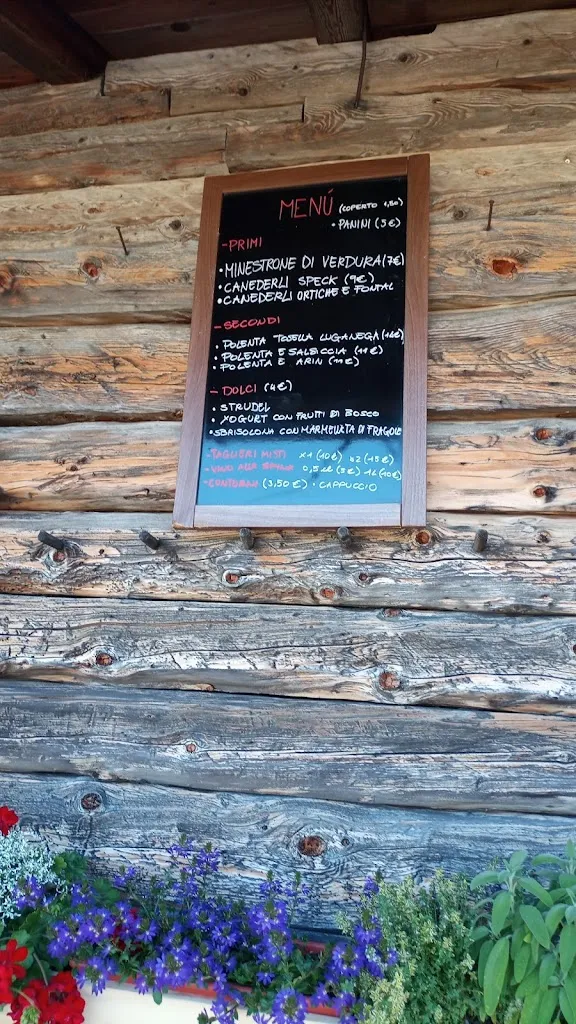 MENÚ (COPERTO 1,50)
• PANINI (5€)
- PRIMI
• MINESTRONE DI VERDURA (7€)
• CANEDERLI SPECK (9€)
• CANEDERLI ORTICHE E FONTAL
- SECONDI
• POLENTA TOSELLA LUGANEGA
• POLENTA E SALSICCIA (11€)
• POLENTA E ARIN (11€)
- DOLCI (4€)
• STRUDEL
• YOGURT CON FRUTTI DI BOSCO
• SBRISOLONA CON MARMELLATA DI FRAGOLE
- TAGLIERI MISTI x1 (10€) x2 (15€)
- VINO ALLA SPINA 0,5 (5€) 1L (10€)
- CONTORNI (3,50€) • CAPPUCCIO